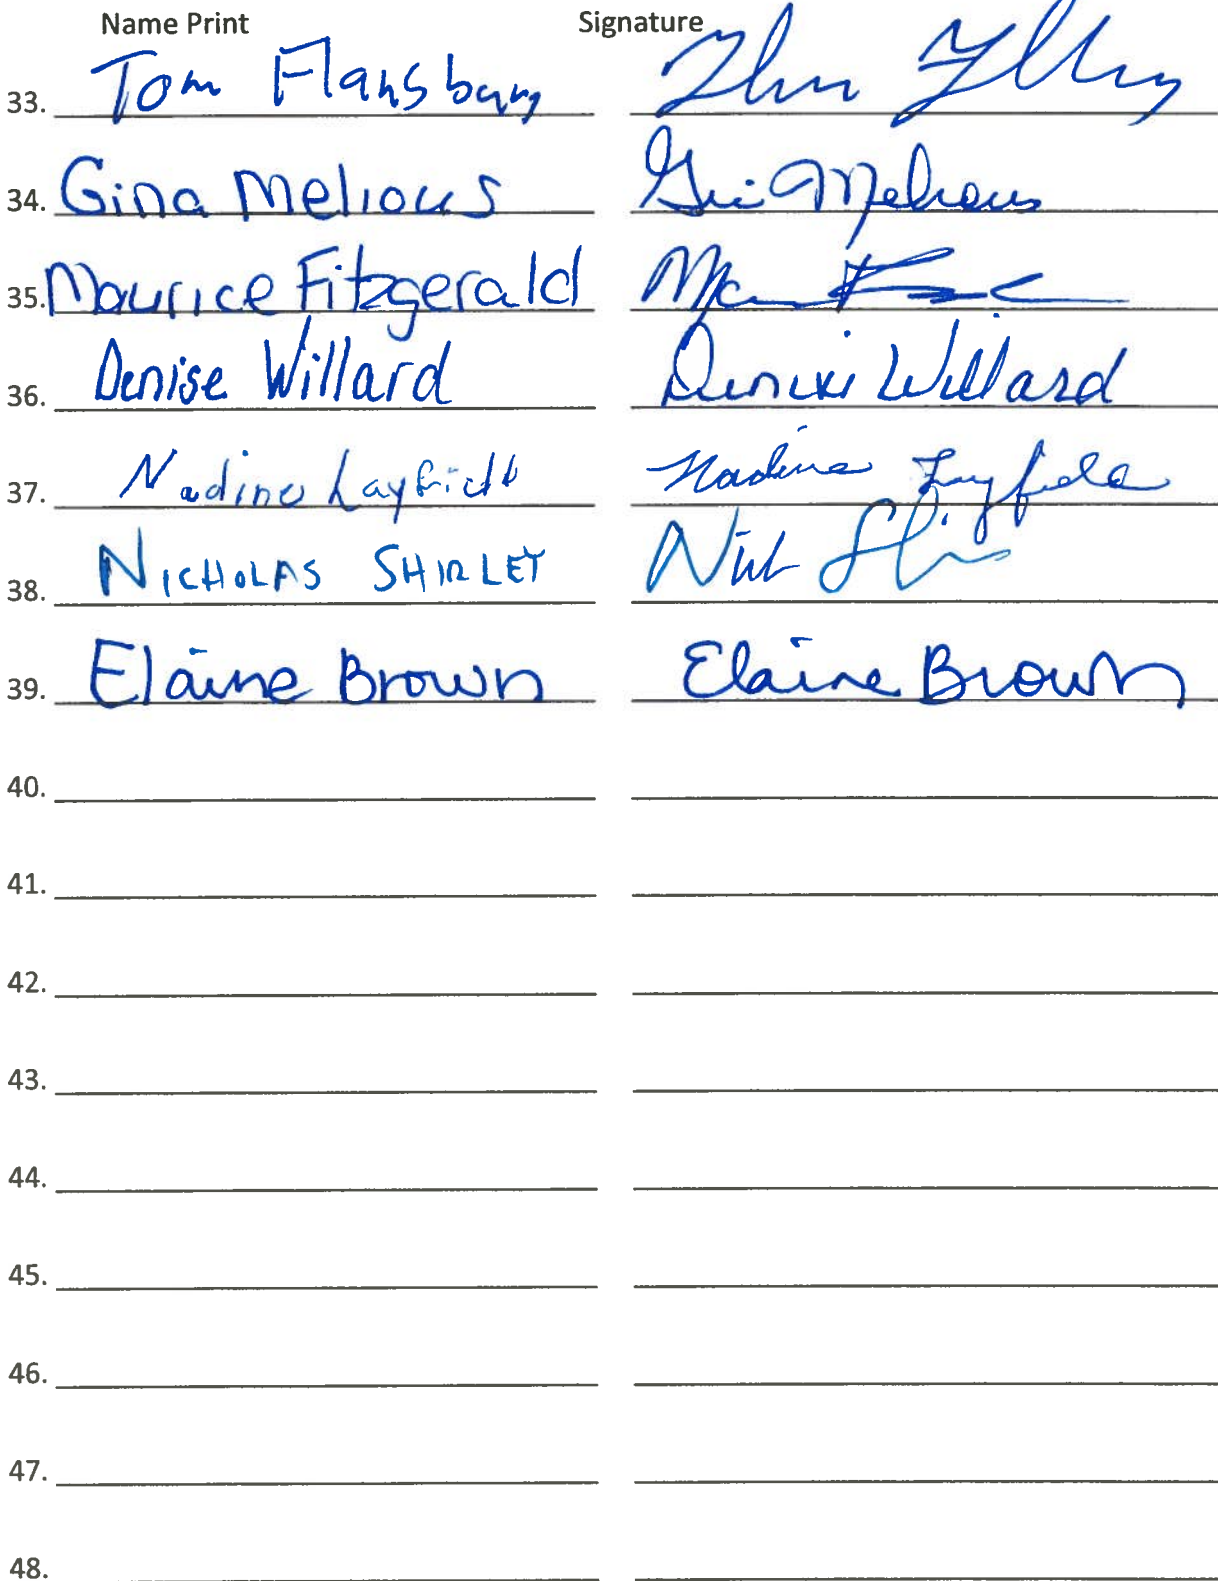 Name Print Signature
33. Tom Flansburg
34. Gina Melious Gina Melious
35. Maurice Fitzgerald
36. Denise Willard Denise Willard
37. Nadine Layfield Nadine Layfield
38. NICHOLAS SHIRLEY Nick
39. Elaine Brown Elaine Brown
40.
41.
42.
43.
44.
45.
46.
47.
48.